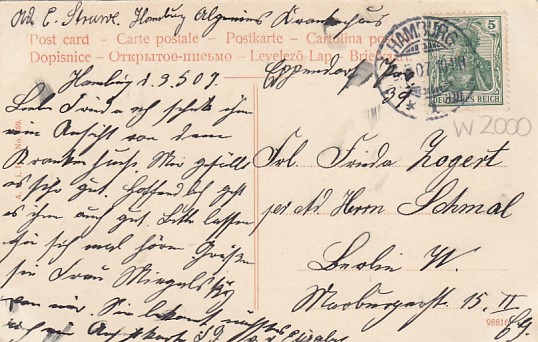 Ad. E. Struve. Hamburg Algemeines Krankenhaus
Post card — Carte postale — Postkarte — Cartolina postale
Dopisnice — Открытое письмо — Levelezö-Lap — Briefkaart
Eppendorf
39
HAMBURG
5
DEUTSCHES REICH
W 2000
Hamburg 1.3.5 07.
Liebe Frieda ich schicke ihn
ein Ansicht von dem
Krankenhaus. Mir gefällt
es sehr gut. Hoffendlich geht
es ihn auch gut. Bitte lassen
sie sich mal hören Grüßen
sie Frau
von mir. Sie bekomt
noch ein Ansichtskarte
Frl. Frieda Zogert
per Ad Herrn Schmal
Berlin W.
Marburgerstr 15. II
98816